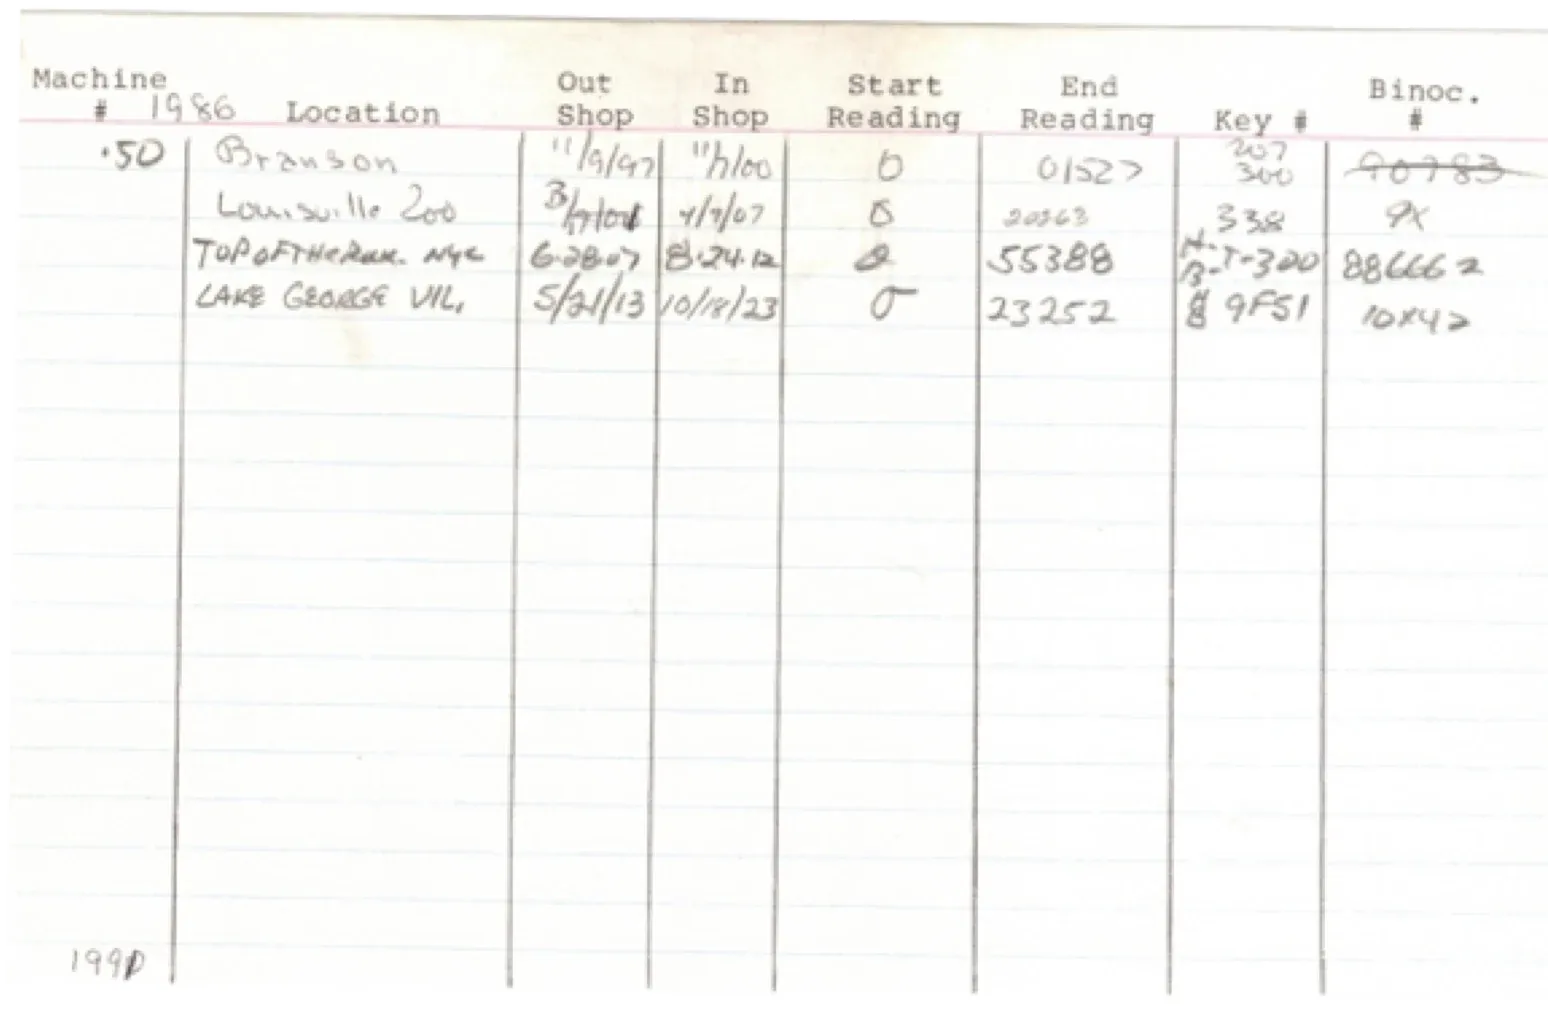 Machine Out In Start End Binoc.
# 1986 Location Shop Shop Reading Reading Key # #
.50 Branson 11/9/97 11/7/00 0 01527 207 300 90783
Louisville Zoo 4/7/07 0 20263 338 9X
TOP OF THE Rock. NYC 6-28-07 8-24-12 0 55388 T-300 886662
LAKE GEORGE VIL. 5/21/13 10/18/23 0 23252 9F51 10X42
1990